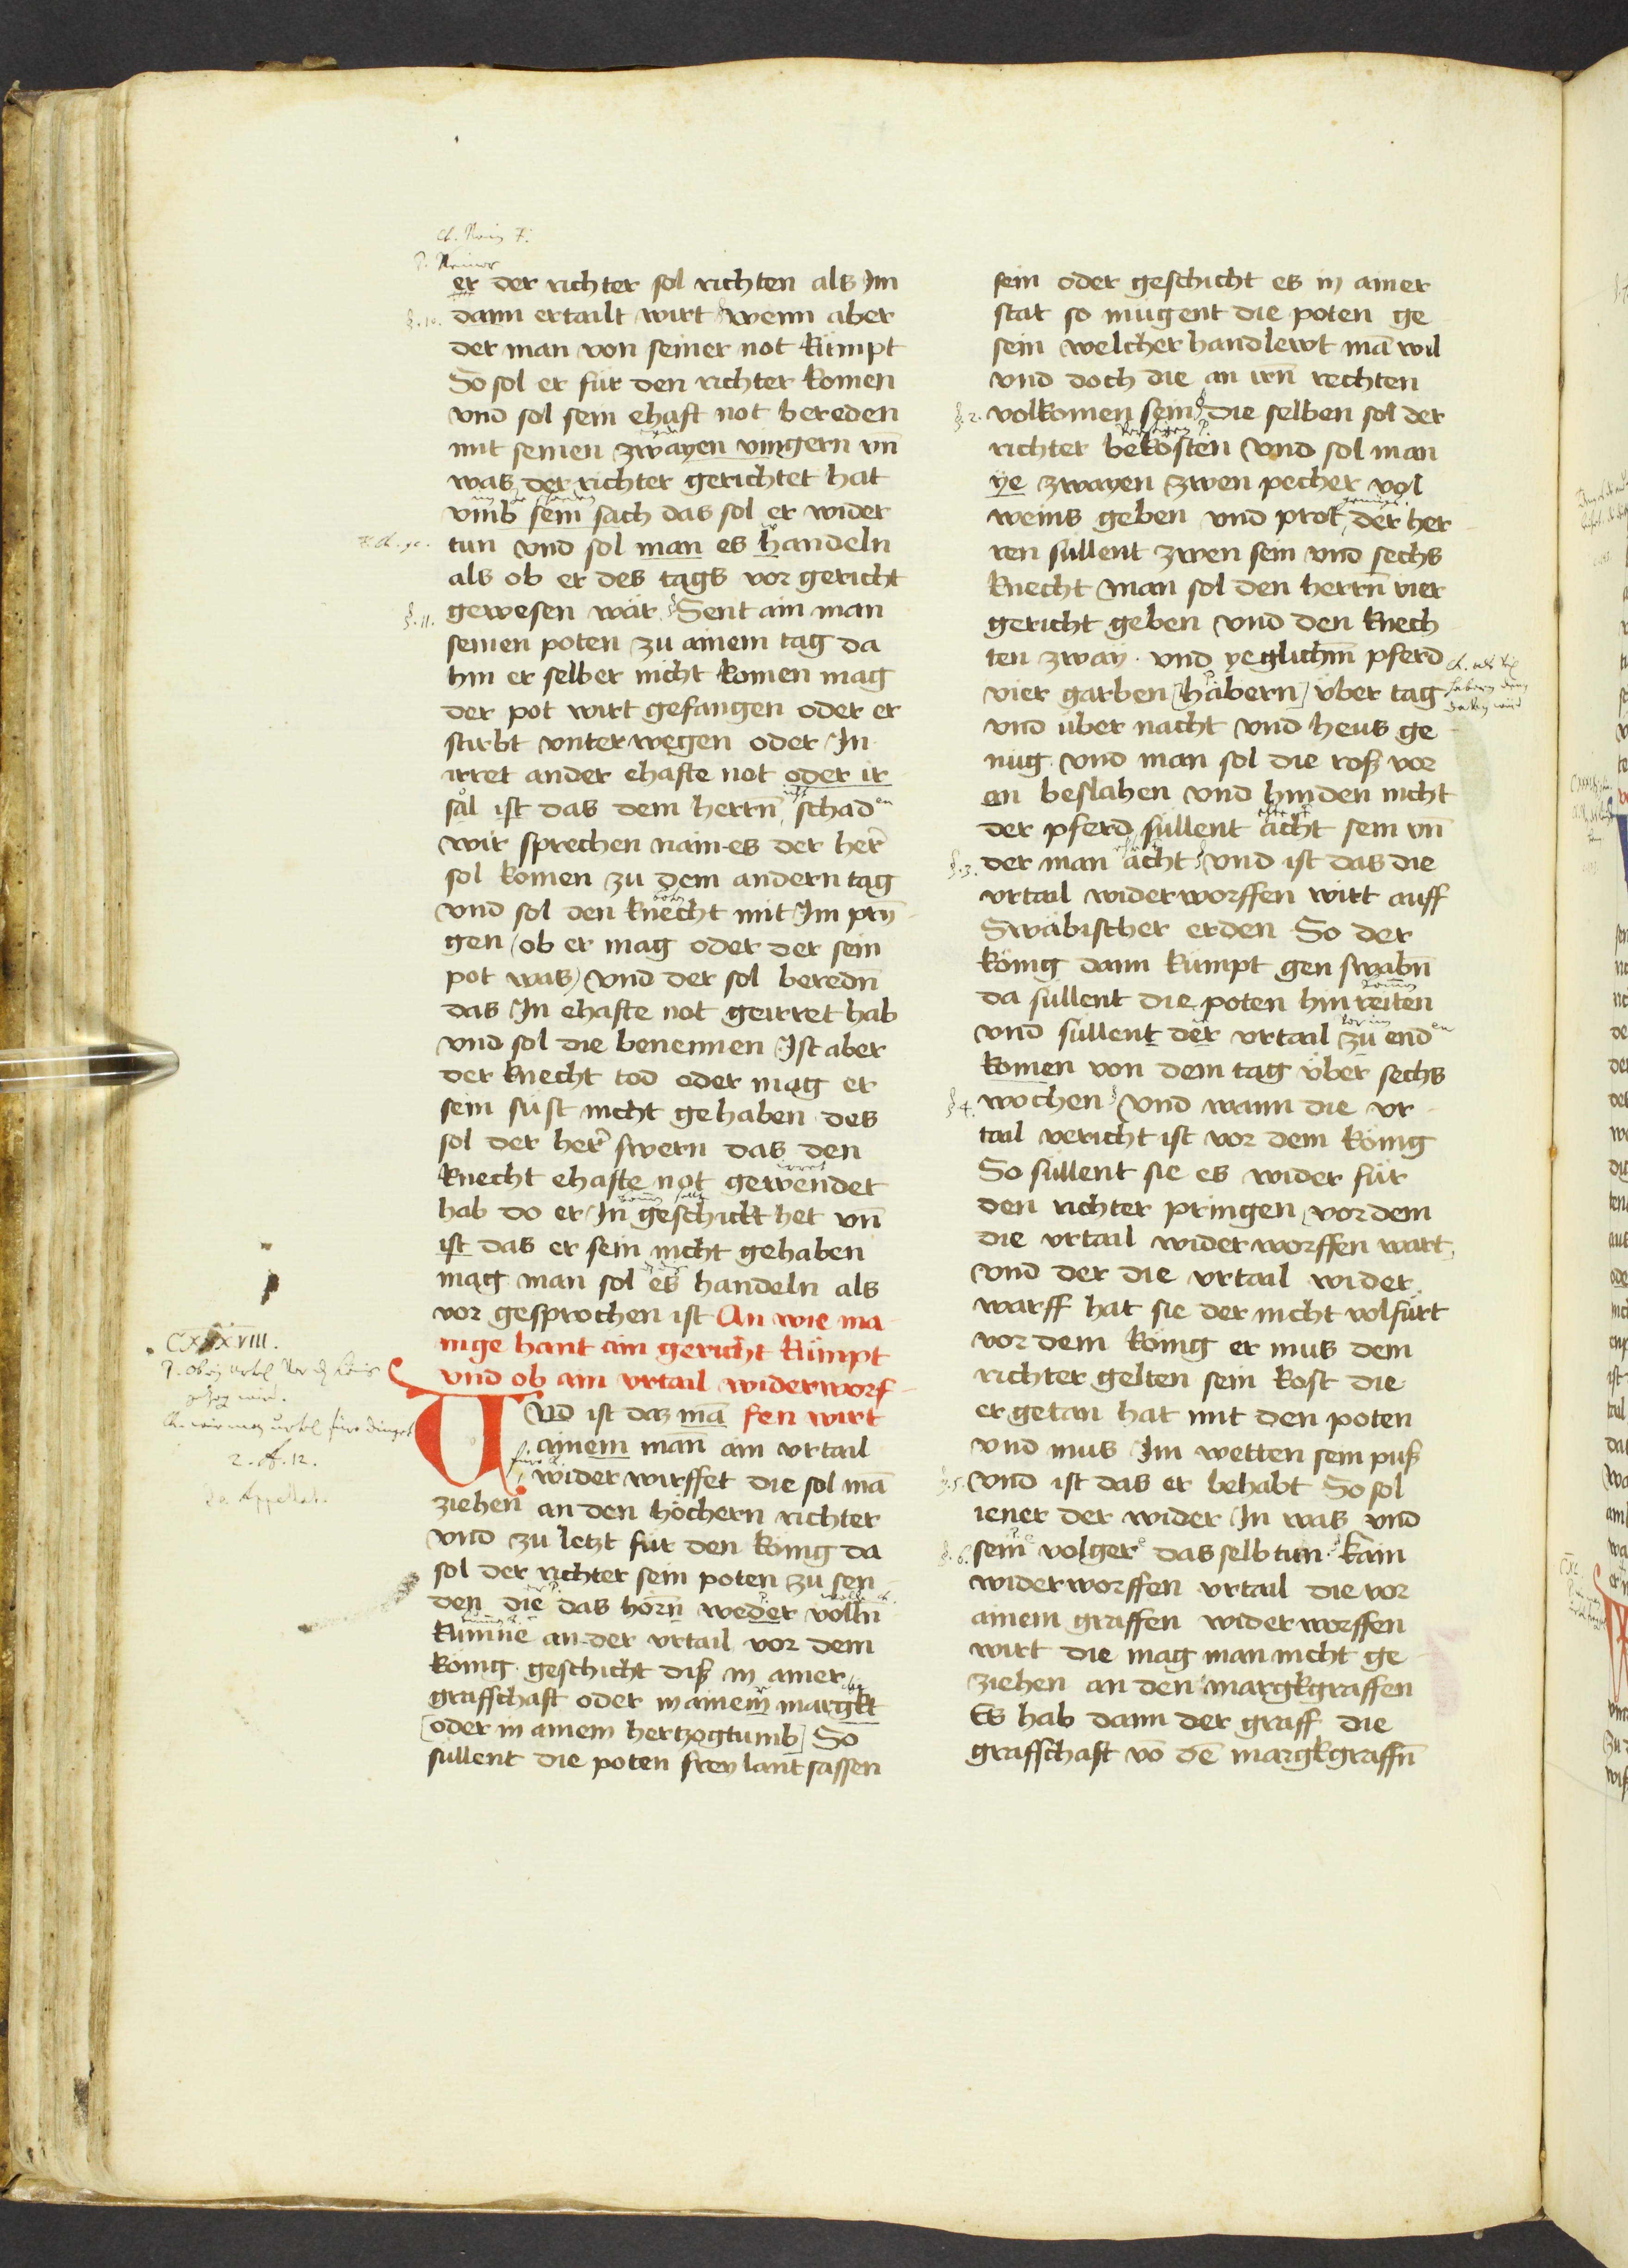 er der richter sol richten als Im
§. 10. dann ertailt wirt wenn aber
der man von seiner not kümpt
So sol er für den richter komen
vnd sol sein ehaft not bereden
mit seinen zwayen vingern vn̄
was der richter gerichtet hat
vmb sein sach das sol er wider
tun vnd sol man es handeln
als ob er des tags vor gericht
§. 11. gewesen wär Sent ain man
seinen poten zu ainem tag da
hin er selber nicht komen mag
der pot wirt gefangen oder er
stirbt vnterwegen oder In
irret ander ehafte not oder ir
sal ist das dem herrn̄ schad
wir sprechen nain es der her̄
sol komen zu dem andern tag
vnd sol den knecht mit Im prin̄
gen (ob er mag oder der sein
pot was) vnd der sol bereden̄
das In ehafte not geirret hab
vnd sol die benennen Ist aber
der knecht tod oder mag er
sein süst nicht gehaben des
sol der her̄ swern das den
knecht ehafte not gewendet
hab do er In geschickt het vn̄
ist das er sein nicht gehaben
mag man sol es handeln als
vor gesprochen ist An wie ma
nige hant ain gericht kümpt
vnd ob ain vrtail widerworf
CXXXVIII.
Vnd ist daz mā fen wirt
ainem mann̄ ain vrtail
wider wirffet die sol mā
ziehen an den höchern richter
vnd zu letzt für den könig da
sol der richter sein poten zu sen
den die das hörn̄ weder volln̄
kumme an der vrtail vor dem
könig geschicht diß in ainer
graffschaft oder in ainem margkt
[oder in ainem hertzogtumb] So
süllent die poten frey lantsassen
sein oder geschicht es in ainer
stat so mügent die poten ge
sein welcher handlewt mā wil
vnd doch die an irn̄ rechten
§. 2. volkomen sein die selben sol der
richter bekosten vnd sol man
ye zwayen zwen pecher vol
weins geben vnd prot der her
ren süllent zwen sein vnd sechs
knecht man sol den herrn̄ vier
gericht geben vnd den knech
ten zway vnd yeglichm̄ pferd
vier garben [häbern] über tag
vnd über nacht vnd heus ge
nüg vnd man sol die roß vor
an beslahen vnd hinden nicht
der pferd süllent acht sein vn̄
§. 3. der man acht vnd ist das die
vrtail widerworffen wirt auff
Swäbischer erden So der
könig dann kümpt gen swabn̄
da süllent die poten hin reiten
vnd süllent der vrtail zu end
komen von dem tag über sechs
§ 4. wochen vnd wann die vr
tail vericht ist vor dem könig
So süllent sie es wider für
den richter pringen vor dem
die vrtail widerworffen wart
vnd der die vrtail wider
warff hat sie der nicht volfürt
vor dem könig er mus dem
richter gelten sein kost die
er getan hat mit den poten
vnd mus Im wetten sein puß
§. 5. vnd ist das er behabt So sol
iener der wider In was vnd
§. 6. sein volger das selb tun kain
widerworffen vrtail die vor
ainem graffen widerworffen
wirt die mag man nicht ge
ziehen an den margkgraffen
Es hab dann der graff die
graffschaft vō dē margkgraffn̄